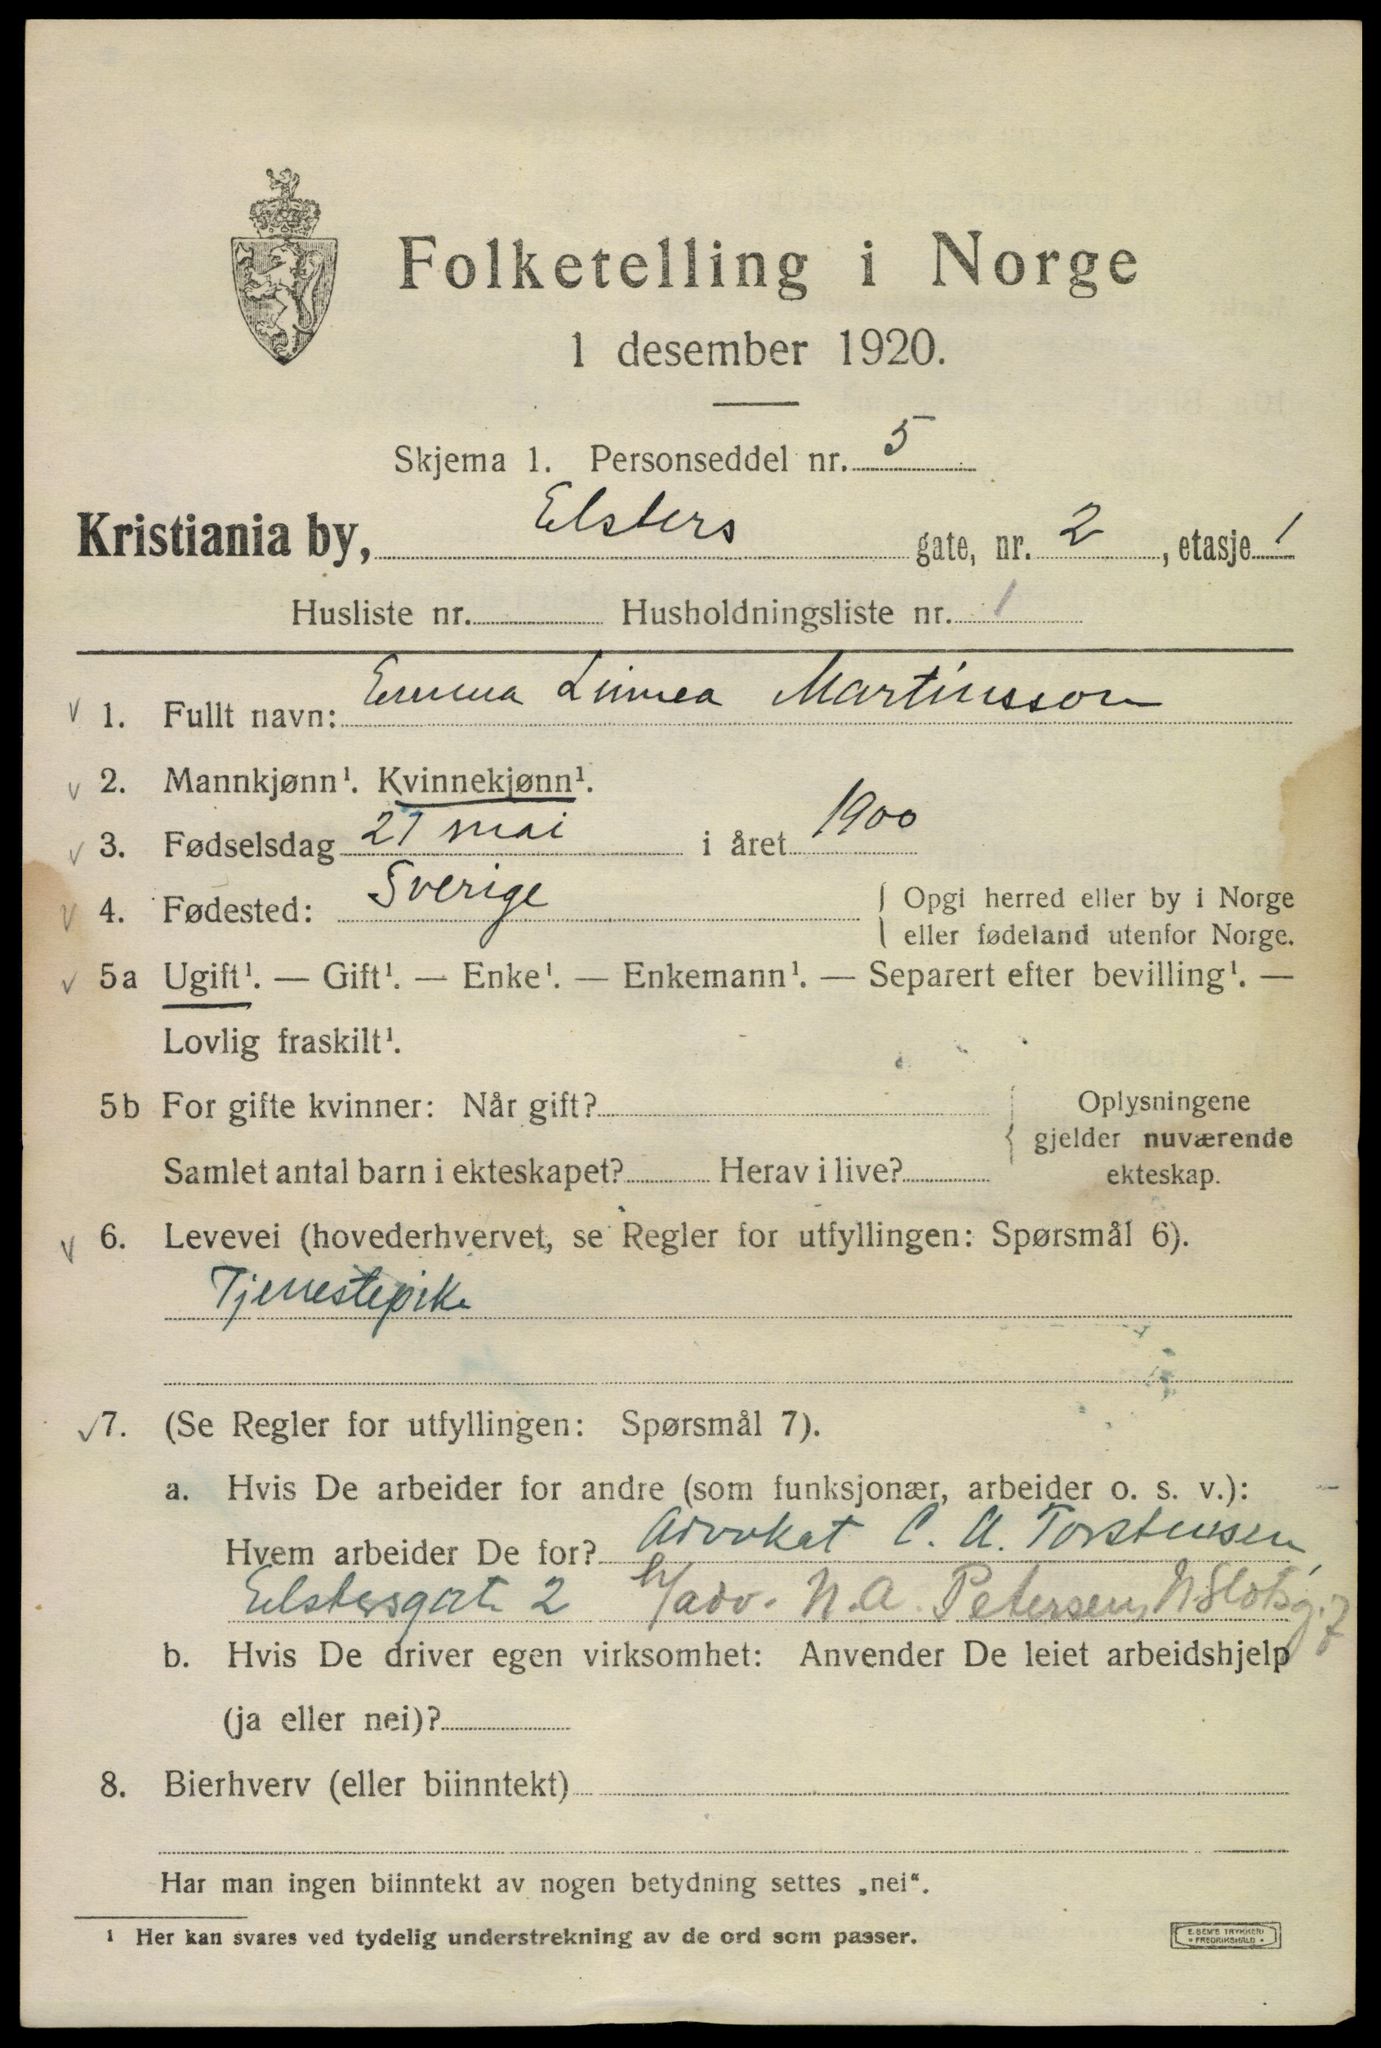 Folketelling i Norge
1 desember 1920.
Skjema 1. Personseddel nr. 5
Kristiania by, Elsters gate, nr. 2, etasje 1
Husliste nr. Husholdningsliste nr. 1
1. Fullt navn: Emma Linnea Martinsson
2. Mannkjønn¹. Kvinnekjønn¹.
3. Fødselsdag 27 mai i året 1900
4. Fødested: Sverige { Opgi herred eller by i Norge
eller fødeland utenfor Norge.
5a Ugift¹. — Gift¹. — Enke¹. — Enkemann¹. — Separert efter bevilling¹. —
Lovlig fraskilt¹.
5b For gifte kvinner: Når gift? { Oplysningene
gjelder nuværende
Samlet antal barn i ekteskapet? Herav i live? ekteskap.
6. Levevei (hovederhvervet, se Regler for utfyllingen: Spørsmål 6).
Tjenestepike
7. (Se Regler for utfyllingen: Spørsmål 7).
a. Hvis De arbeider for andre (som funksjonær, arbeider o. s. v.):
Hvem arbeider De for? Advokat C. A. Torstensen,
Elstersgate 2 h/adv. N. A. Petersen, N Slotsg. 7
b. Hvis De driver egen virksomhet: Anvender De leiet arbeidshjelp
(ja eller nei)?
8. Bierhverv (eller biinntekt)
Har man ingen biinntekt av nogen betydning settes „nei“.
¹ Her kan svares ved tydelig understrekning av de ord som passer.
E. SEM'S TRYKKERI
FREDRIKSHALD